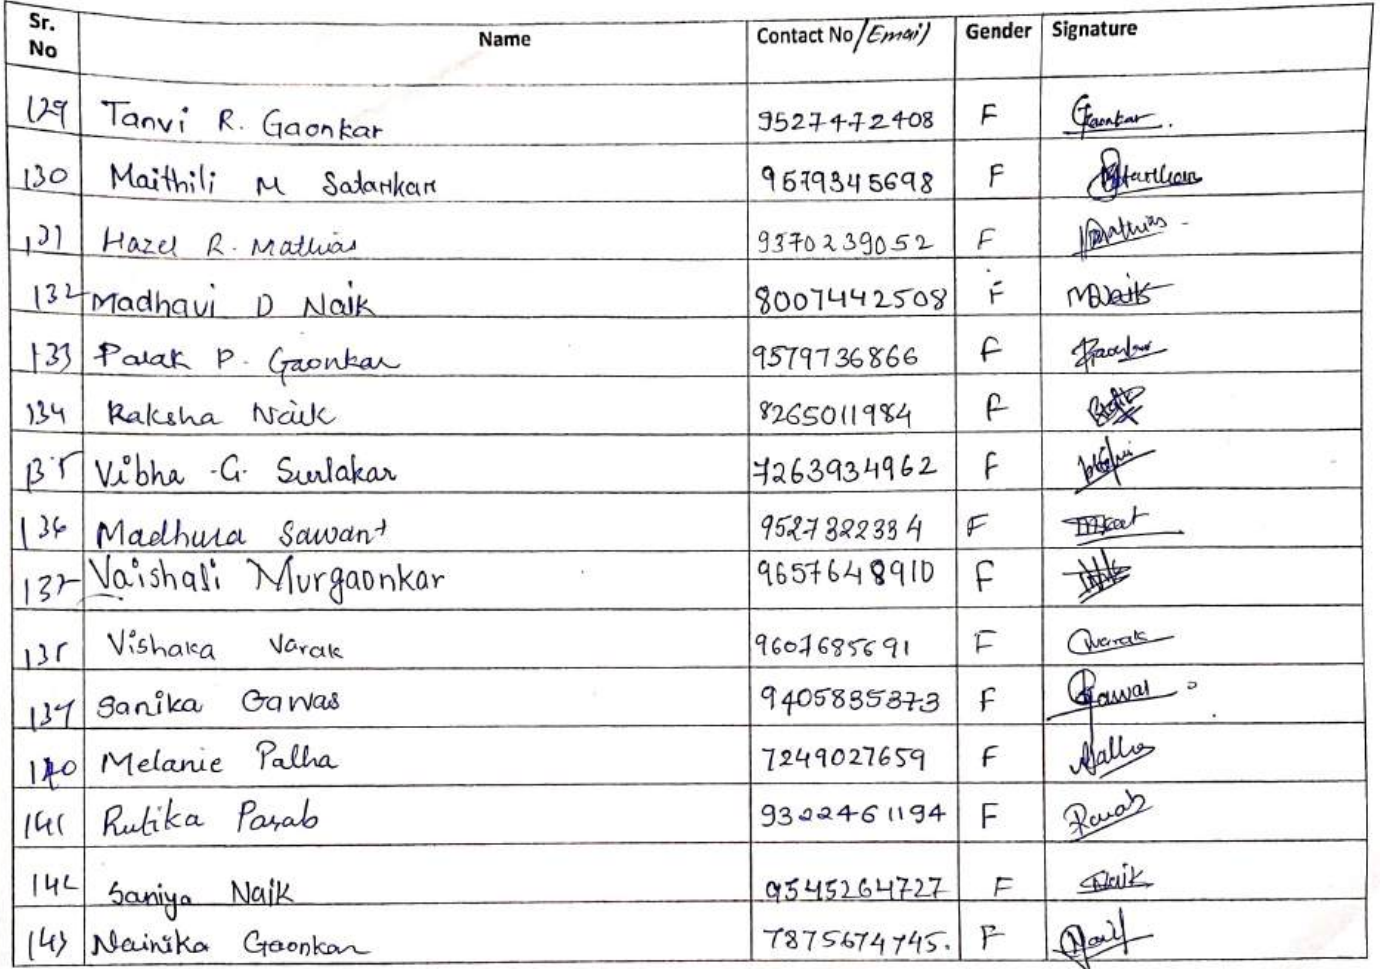 Sr. No Name Contact No/Email) Gender Signature
129 Tanvi R. Gaonkar 9527472408 F Gaonkar.
130 Maithili M Satarkar 9579345698 F
131 Hazel R. Mathias 9370239052 F Mathias
132 Madhavi D Naik 8007442508 F MNaik
133 Palak P. Gaonkar 9579736866 F Gaonkar
134 Raksha Naik 8265011984 F
135 Vibha G. Surlakar 7263934962 F
136 Madhura Sawant 9527322334 F
137 Vaishali Murgaonkar 9657648910 F
138 Vishaka Varak 9607685691 F Varak
139 Sanika Gawas 9405835373 F Gawas
140 Melanie Palha 7249027659 F Palha
141 Rutika Parab 9322461194 F Parab
142 Saniya Naik 9545264727 F Naik
143 Nainika Gaonkar 7875674745. F